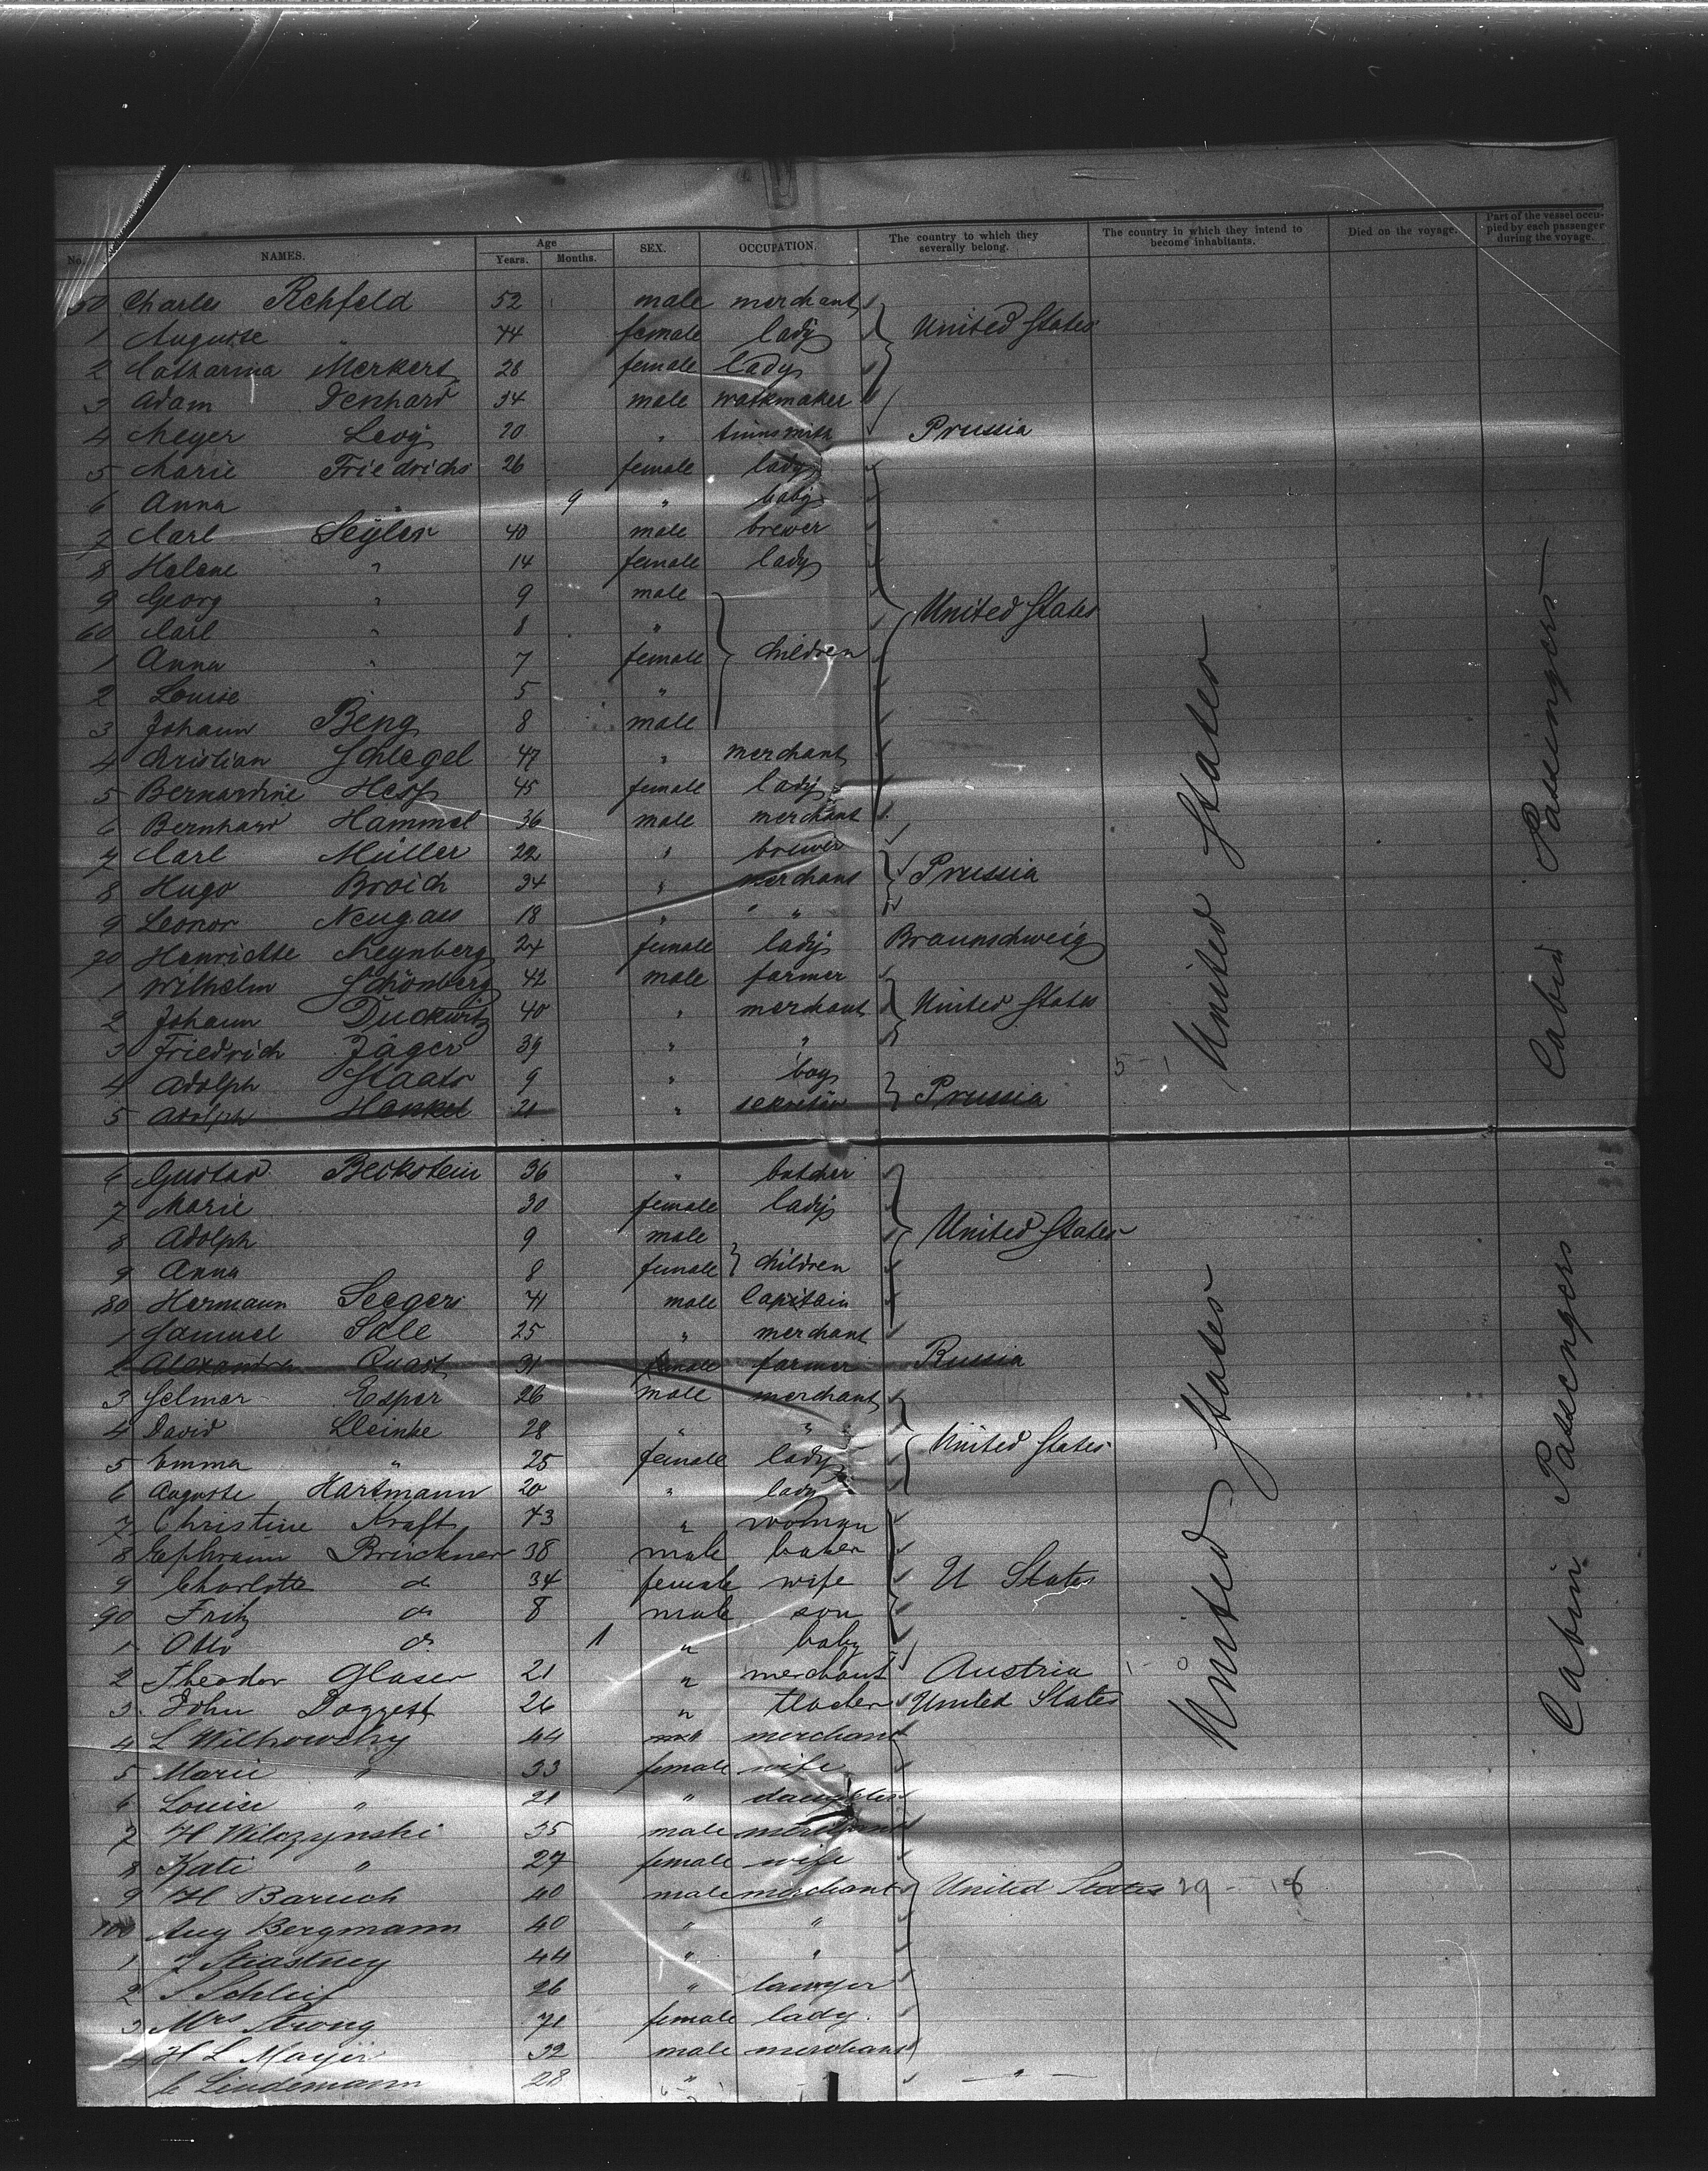 No. NAMES. Age Years. Months. SEX. OCCUPATION. The country to which they severally belong. The country in which they intend to become inhabitants. Died on the voyage. Part of the vessel occupied by each passenger during the voyage.
50 Charles Rehfeld 52 male merchant
1 Auguste " 44 female lady United States
2 Catharina Merkert 28 female lady
3 Adam Denhard 34 male
4 Meyer Levy 20 " Prussia
5 Marie Friedrichs 26 female lady
6 Anna " 9 " baby
7 Carl Seyler 40 male brewer
8 Helene " 14 female lady
9 Georg " 9 male United States
60 Carl " 8 "
1 Anna " 7 female children
2 Louise 5 "
3 Johann Beng 8 male
4 Christian Schlegel 47 " merchant
5 Bernardine Hess 45 female lady
6 Bernhard Hammel 36 male merchant
7 Carl Müller 22 " brewer
8 Hugo Broich 34 " merchant Prussia
9 Leonor Neugass 18 " "
70 Henriette Meynberg 24 female lady Braunschweig
1 Wilhelm Schömberg 42 male farmer
2 Johann Duckwitz 40 " merchant United States
3 Friedrich Jäger 39 " "
4 Adolph Staats 9 " boy 5 - 1
5 Adolph Henkel 21 " Prussia
United States
Cabin Passengers
6 Gustav Beckstein 36 " butcher
7 Marie 30 female lady
8 Adolph 9 male United States
9 Anna 8 female children
80 Hermann Seegers 41 male Capitain
1 Samuel Sale 25 " merchant
2 Alexandra Quast 31 female farmer Russia
3 Selmar Esper 26 male merchant
4 David 28 " "
5 Emma " 25 female lady United States
6 Auguste Hartmann 20 " lady
7 Christine Kraft 43 " woman
8 Ephraim Brückner 38 male baker
9 Charlotte do 34 female wife U States
90 Fritz do 8 male son
1 Otto do 1 " baby
2 Theodor Glaser 21 " merchant Austria 1 - 0
3 John Doggett 26 " United States
4 L Wilkowsky 44 merchant
5 Marie " 33 female wife
6 Louise " 21 " daughter
7 H Wilczynski 35 male merchant
8 Kati " 27 female wife
9 H Baruch 40 male merchant United States 29 - 18
100 Aug Bergmann 40 " "
1 44 " "
2 S Schleif 26 " lawyer
3 Mrs Strong 71 female lady
4 H L Mayer 32 male merchant
C Lindemann 28 " "
United States
Cabin Passengers